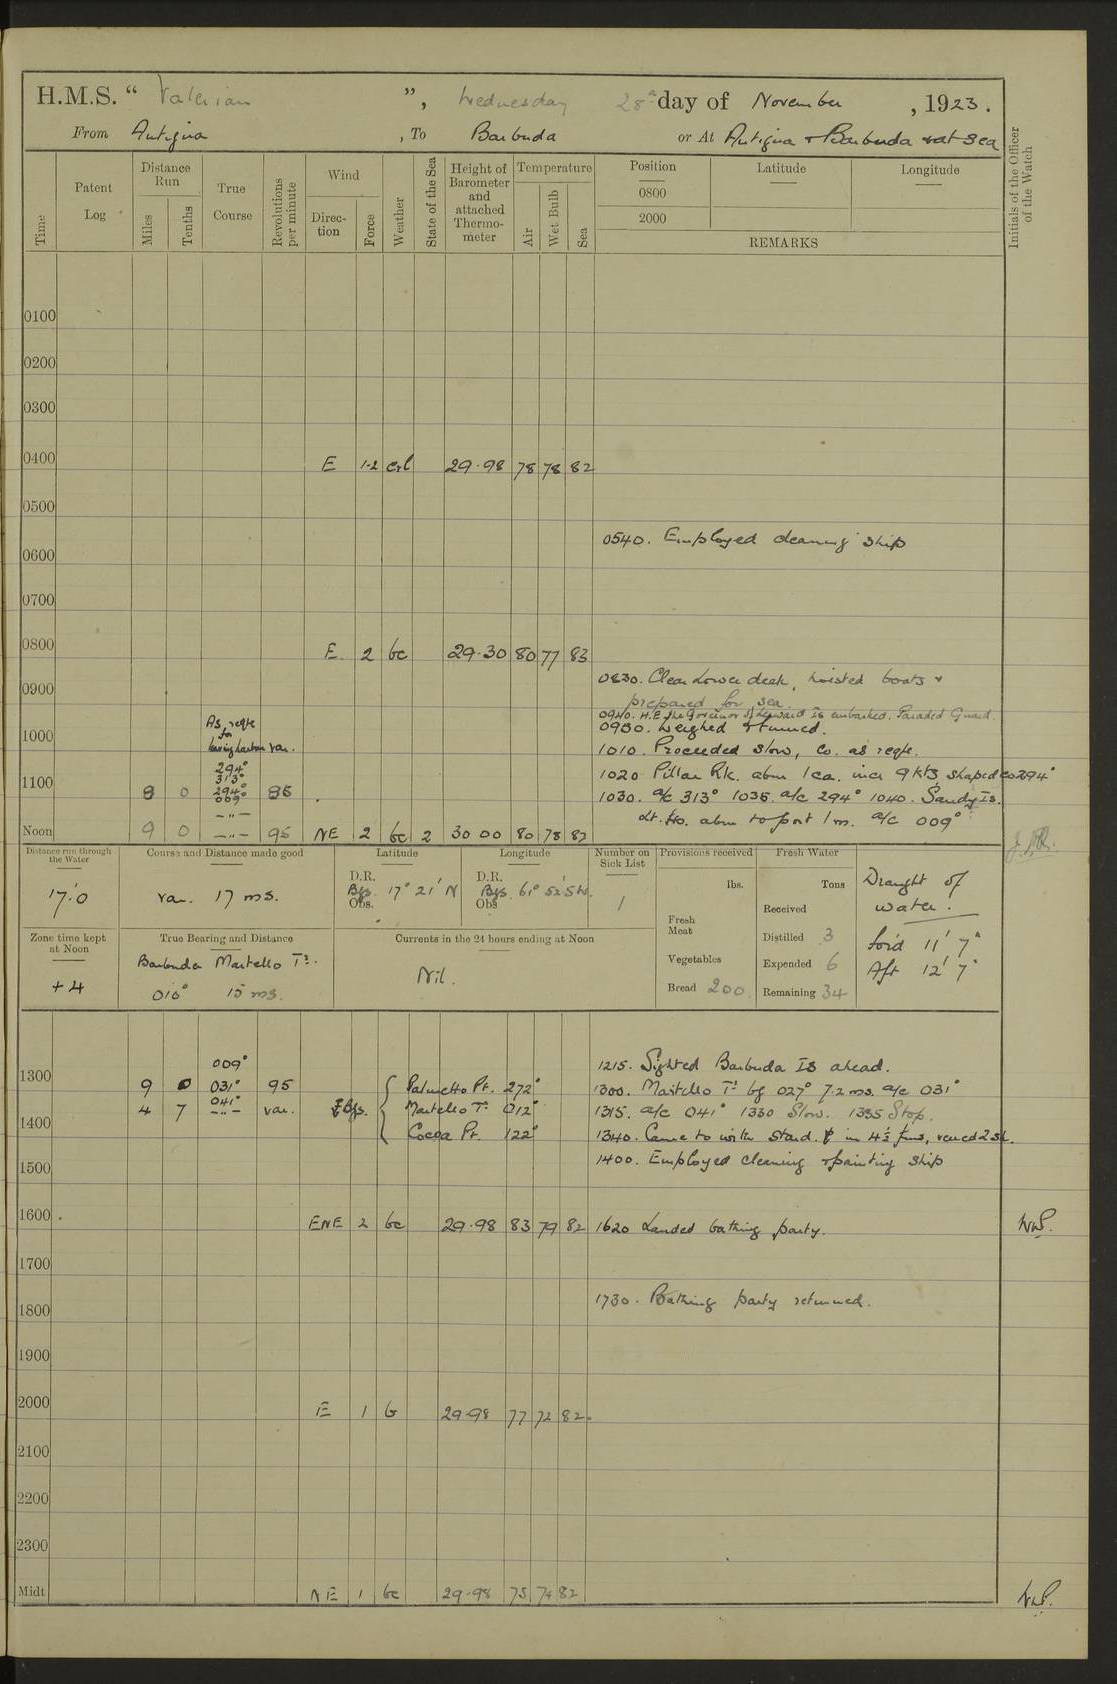 H.M.S. “ Valerian ”, Wednesday 28th day of November, 1923.
From Antigua, To Barbuda or At Antigua & Barbuda & at sea
Time
Patent Log
Distance Run
Miles
Tenths
True Course
Revolutions per minute
Wind
Direction
Force
Weather
State of the Sea
Height of Barometer and attached Thermometer
Temperature
Air
Wet Bulb
Sea
Position
Latitude
Longitude
0800
2000
REMARKS
Initials of the Officer of the Watch
0100
0200
0300
0400 E 1-2 29.98 78 78 82
0500
0540. Employed cleaning ship
0600
0700
0800 E 2 bc 29.30 80 77 83
0830. Clear Lower deck, hoisted boats &
prepared for sea.
0900
0940. H.E. the Governor of Leeward Is embarked. Paraded Guard.
As reqte for leaving harbour var.
0950. Weighed & turned.
1000
1010. Proceeded slow, Co. as reqte.
294°
313°
1020 Pillar Rk. abm 1 ca. incr 9 kts shaped co 294°
1100 8 0 294° 009° 86
1030. a/c 313° 1035. a/c 294° 1040. Sandy Is.
Lt. Ho. abm to port 1 m. a/c 009°
Noon 9 0 —"— 95 NE 2 bc 2 30 00 80 78 82
Distance run through the Water
Course and Distance made good
Latitude
Longitude
Number on Sick List
Provisions received
Fresh Water
17.0
var. 17 ms.
D.R.
Bgs. 17° 21' N
Obs.
D.R.
Bgs 61° 52'.5 W.
Obs
1
lbs.
Fresh Meat
Vegetables
Bread 200
Tons
Received
Distilled 3
Expended 6
Remaining 34
Draught of
water.
For'd 11' 7"
Aft 12' 7"
Zone time kept at Noon
+4
True Bearing and Distance
Barbuda Martello Tr.
010° 15 ms.
Currents in the 24 hours ending at Noon
Nil.
009°
1215. Sighted Barbuda Is ahead.
1300 9 0 031° 95 Palmetto Pt. 272°
1300. Martello Tr bg 027° 7.2 ms. a/c 031°
4 7 041° —"— var. Bgs. Martello Tr. 012°
1315. a/c 041° 1330 Slow. 1335 Stop.
1400 Cocoa Pt. 122°
1340. Came to with Stard. in 4½ fms, veered 2 sh.
1400. Employed cleaning & painting ship
1500
1600 ENE 2 bc 29.98 83 79 82 1620 Landed bathing party.
1700
1730. Bathing party returned.
1800
1900
2000 E 1 b 29.98 77 72 82
2100
2200
2300
Midt NE 1 bc 29.98 75 74 82